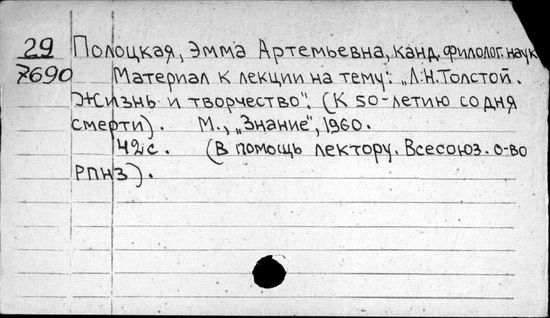 29 Полоцкая, Эмма Артемьевна, канд. филолог. наук
7690 Материал к лекции на тему: „Л.Н.Толстой.
Жизнь и творчество". (К 50-летию со дня
смерти). М., „Знание", 1960.
42с. (В помощь лектору. Всесоюз. о-во
РПНЗ).